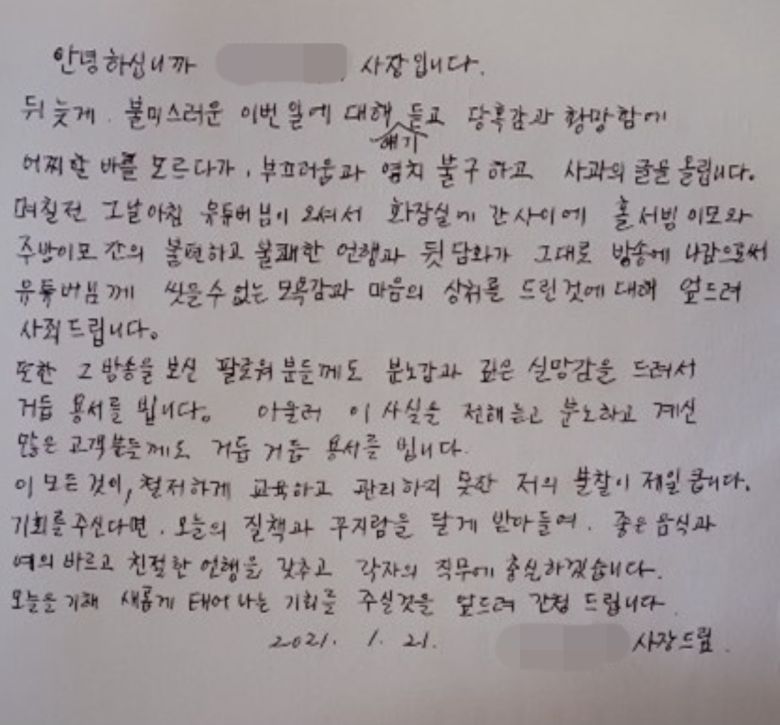 안녕하십니까 사장입니다.
뒤 늦게. 불미스러운 이번 일에 대해 얘기 듣고 당혹감과 황망함에
어찌할 바를 모르다가, 부끄러움과 염치 불구하고 사과의 글을 올립니다.
며칠전 그날아침 유튜버님이 오셔서 화장실에 간사이에 홀서빙 이모와
주방이모 간의 불편하고 불쾌한 언행과 뒷 담화가 그대로 방송에 나감으로써
유튜버님께 씻을수 없는 모욕감과 마음의 상처를 드린것에 대해 엎드려
사죄드립니다.
또한 그 방송을 보신 팔로워 분들께도 분노감과 깊은 실망감을 드려서
거듭 용서를 빕니다. 아울러 이 사실을 전해듣고 분노하고 계신
많은 고객분들께도 거듭 거듭 용서를 빕니다.
이 모든것이, 철저하게 교육하고 관리하지 못한 저의 불찰이 제일 큽니다.
기회를 주신다면. 오늘의 질책과 꾸지람을 달게 받아들여. 좋은 음식과
예의 바르고 친절한 언행을 갖추고 각자의 직무에 충실하겠습니다.
오늘을 기해 새롭게 태어나는 기회를 주실것을 엎드려 간청 드립니다.
2021. 1. 21. 사장드림.